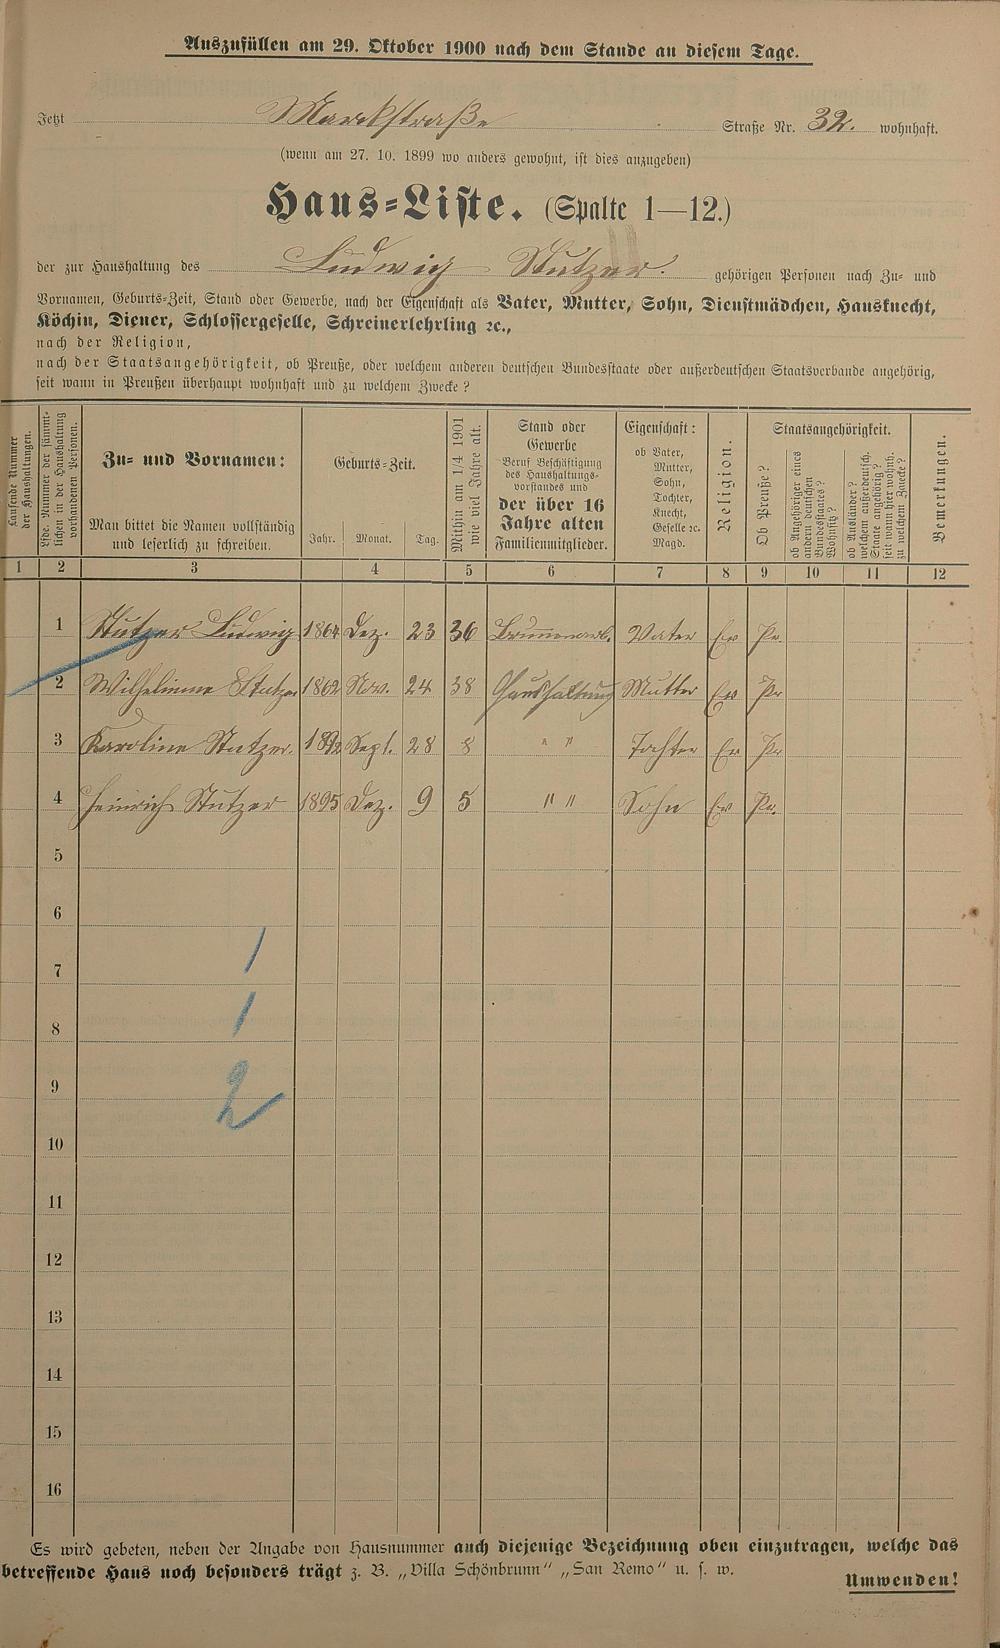 Auszufüllen am 29. Oktober 1900 nach dem Stande an diesem Tage.
Jetzt Marktstraße Straße Nr. 32. wohnhaft.
(wenn am 27. 10. 1899 wo anders gewohnt, ist dies anzugeben)
Haus-Liste. (Spalte 1—12.)
der zur Haushaltung des Ludwig Stutzer. gehörigen Personen nach Zu- und
Vornamen, Geburts-Zeit, Stand oder Gewerbe, nach der Eigenschaft als Vater, Mutter, Sohn, Dienstmädchen, Hausknecht,
Köchin, Diener, Schlossergeselle, Schreinerlehrling ꝛc.,
nach der Religion,
nach der Staatsangehörigkeit, ob Preuße, oder welchem anderen deutschen Bundesstaate oder außerdeutschen Staatsverbande angehörig,
seit wann in Preußen überhaupt wohnhaft und zu welchem Zwecke?
Laufende Nummer der Haushaltungen.
Lfde. Nummer der sämmtlichen in der Haushaltung vorhandenen Personen.
Zu- und Vornamen:
Man bittet die Namen vollständig
und leserlich zu schreiben.
Geburts-Zeit.
Jahr. Monat. Tag.
Mithin am 1/4 1901 wie viel Jahre alt.
Stand oder
Gewerbe
Beruf Beschäftigung
des Haushaltungs-
vorstandes und
der über 16
Jahre alten
Familienmitglieder.
Eigenschaft:
ob Vater,
Mutter,
Sohn,
Tochter,
Knecht,
Geselle ꝛc.
Magd.
Religion.
Staatsangehörigkeit.
Ob Preuße?
ob Angehöriger eines andern deutschen Bundesstaates? Wohnsitz?
ob Ausländer? welchem außerdeutsch. Staate angehörig? seit wann hier wohnh. zu welchem Zwecke?
Bemerkungen.
1 2 3 4 5 6 7 8 9 10 11 12
1 Stutzer Ludwig 1864 Dez. 23 36 Vater Ev Pr.
2 Wilhelmine Stutzer 1862 Nov. 24 38 Haushaltung Mutter Ev Pr
3 Karoline Stutzer. 1892 Sept. 28 8 " " Tochter Ev Pr
4 Heinrich Stutzer 1895 Dez. 9 5 " " Sohn Ev Pr.
5
6
1
7
1
8
2
9
10
11
12
13
14
15
16
Es wird gebeten, neben der Angabe von Hausnummer auch diejenige Bezeichnung oben einzutragen, welche das
betreffende Haus noch besonders trägt z. B. „Villa Schönbrunn" „San Remo" u. s. w.
Umwenden!